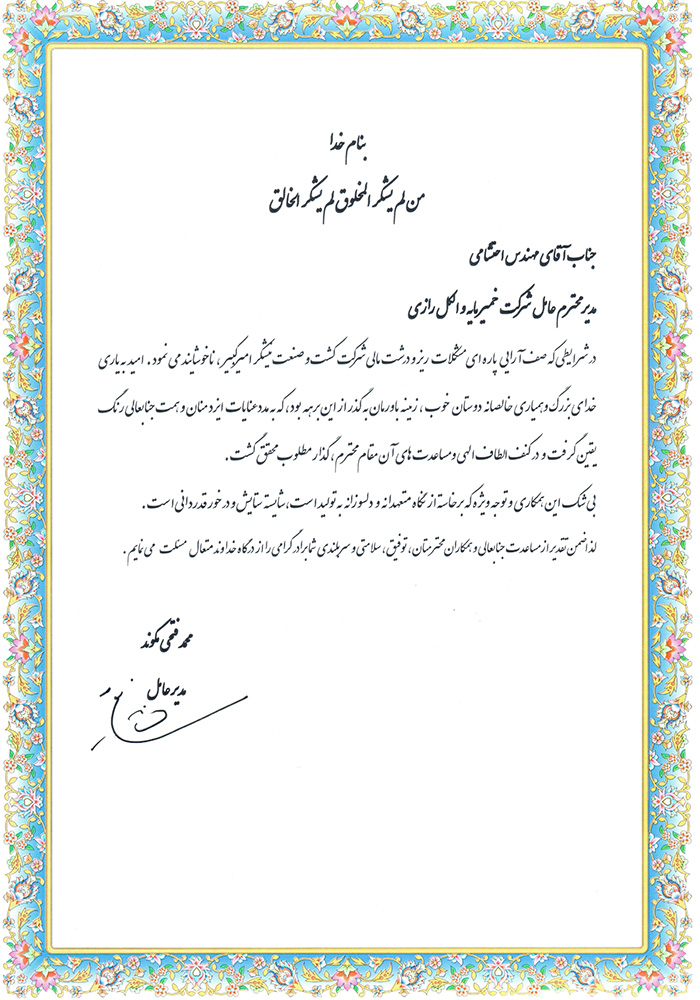 بنام خدا
من لم یشکر المخلوق لم یشکر الخالق
جناب آقای مهندس احتشامی
مدیر محترم عامل شرکت خمیرمایه و الکل رازی
در شرایطی که صف آرایی پاره ای مشکلات ریز و درشت مالی شرکت کشت و صنعت نیشکر امیرکبیر، ناخوشایند می نمود . امید به یاری
خدای بزرگ و همیاری خالصانه دوستان خوب ، زمینه باورمان به گذر از این برهه بود، که به مدد عنایات ایزد منان و همت جنابعالی رنگ
یقین گرفت و در کنف الطاف الهی و مساعدت های آن مقام محترم ، گذار مطلوب محقق گشت .
بی شک این همکاری و توجه ویژه که برخاسته از نگاه متعهدانه و دلسوزانه به تولید است، شایسته ستایش و درخور قدردانی است .
لذا ضمن تقدیر از مساعدت جنابعالی و همکاران محترمتان ، توفیق ، سلامتی و سربلندی شما برادر گرامی را از درگاه خداوند متعال مسئلت می نمایم .
محمد فتحی مکوند
مدیر عامل